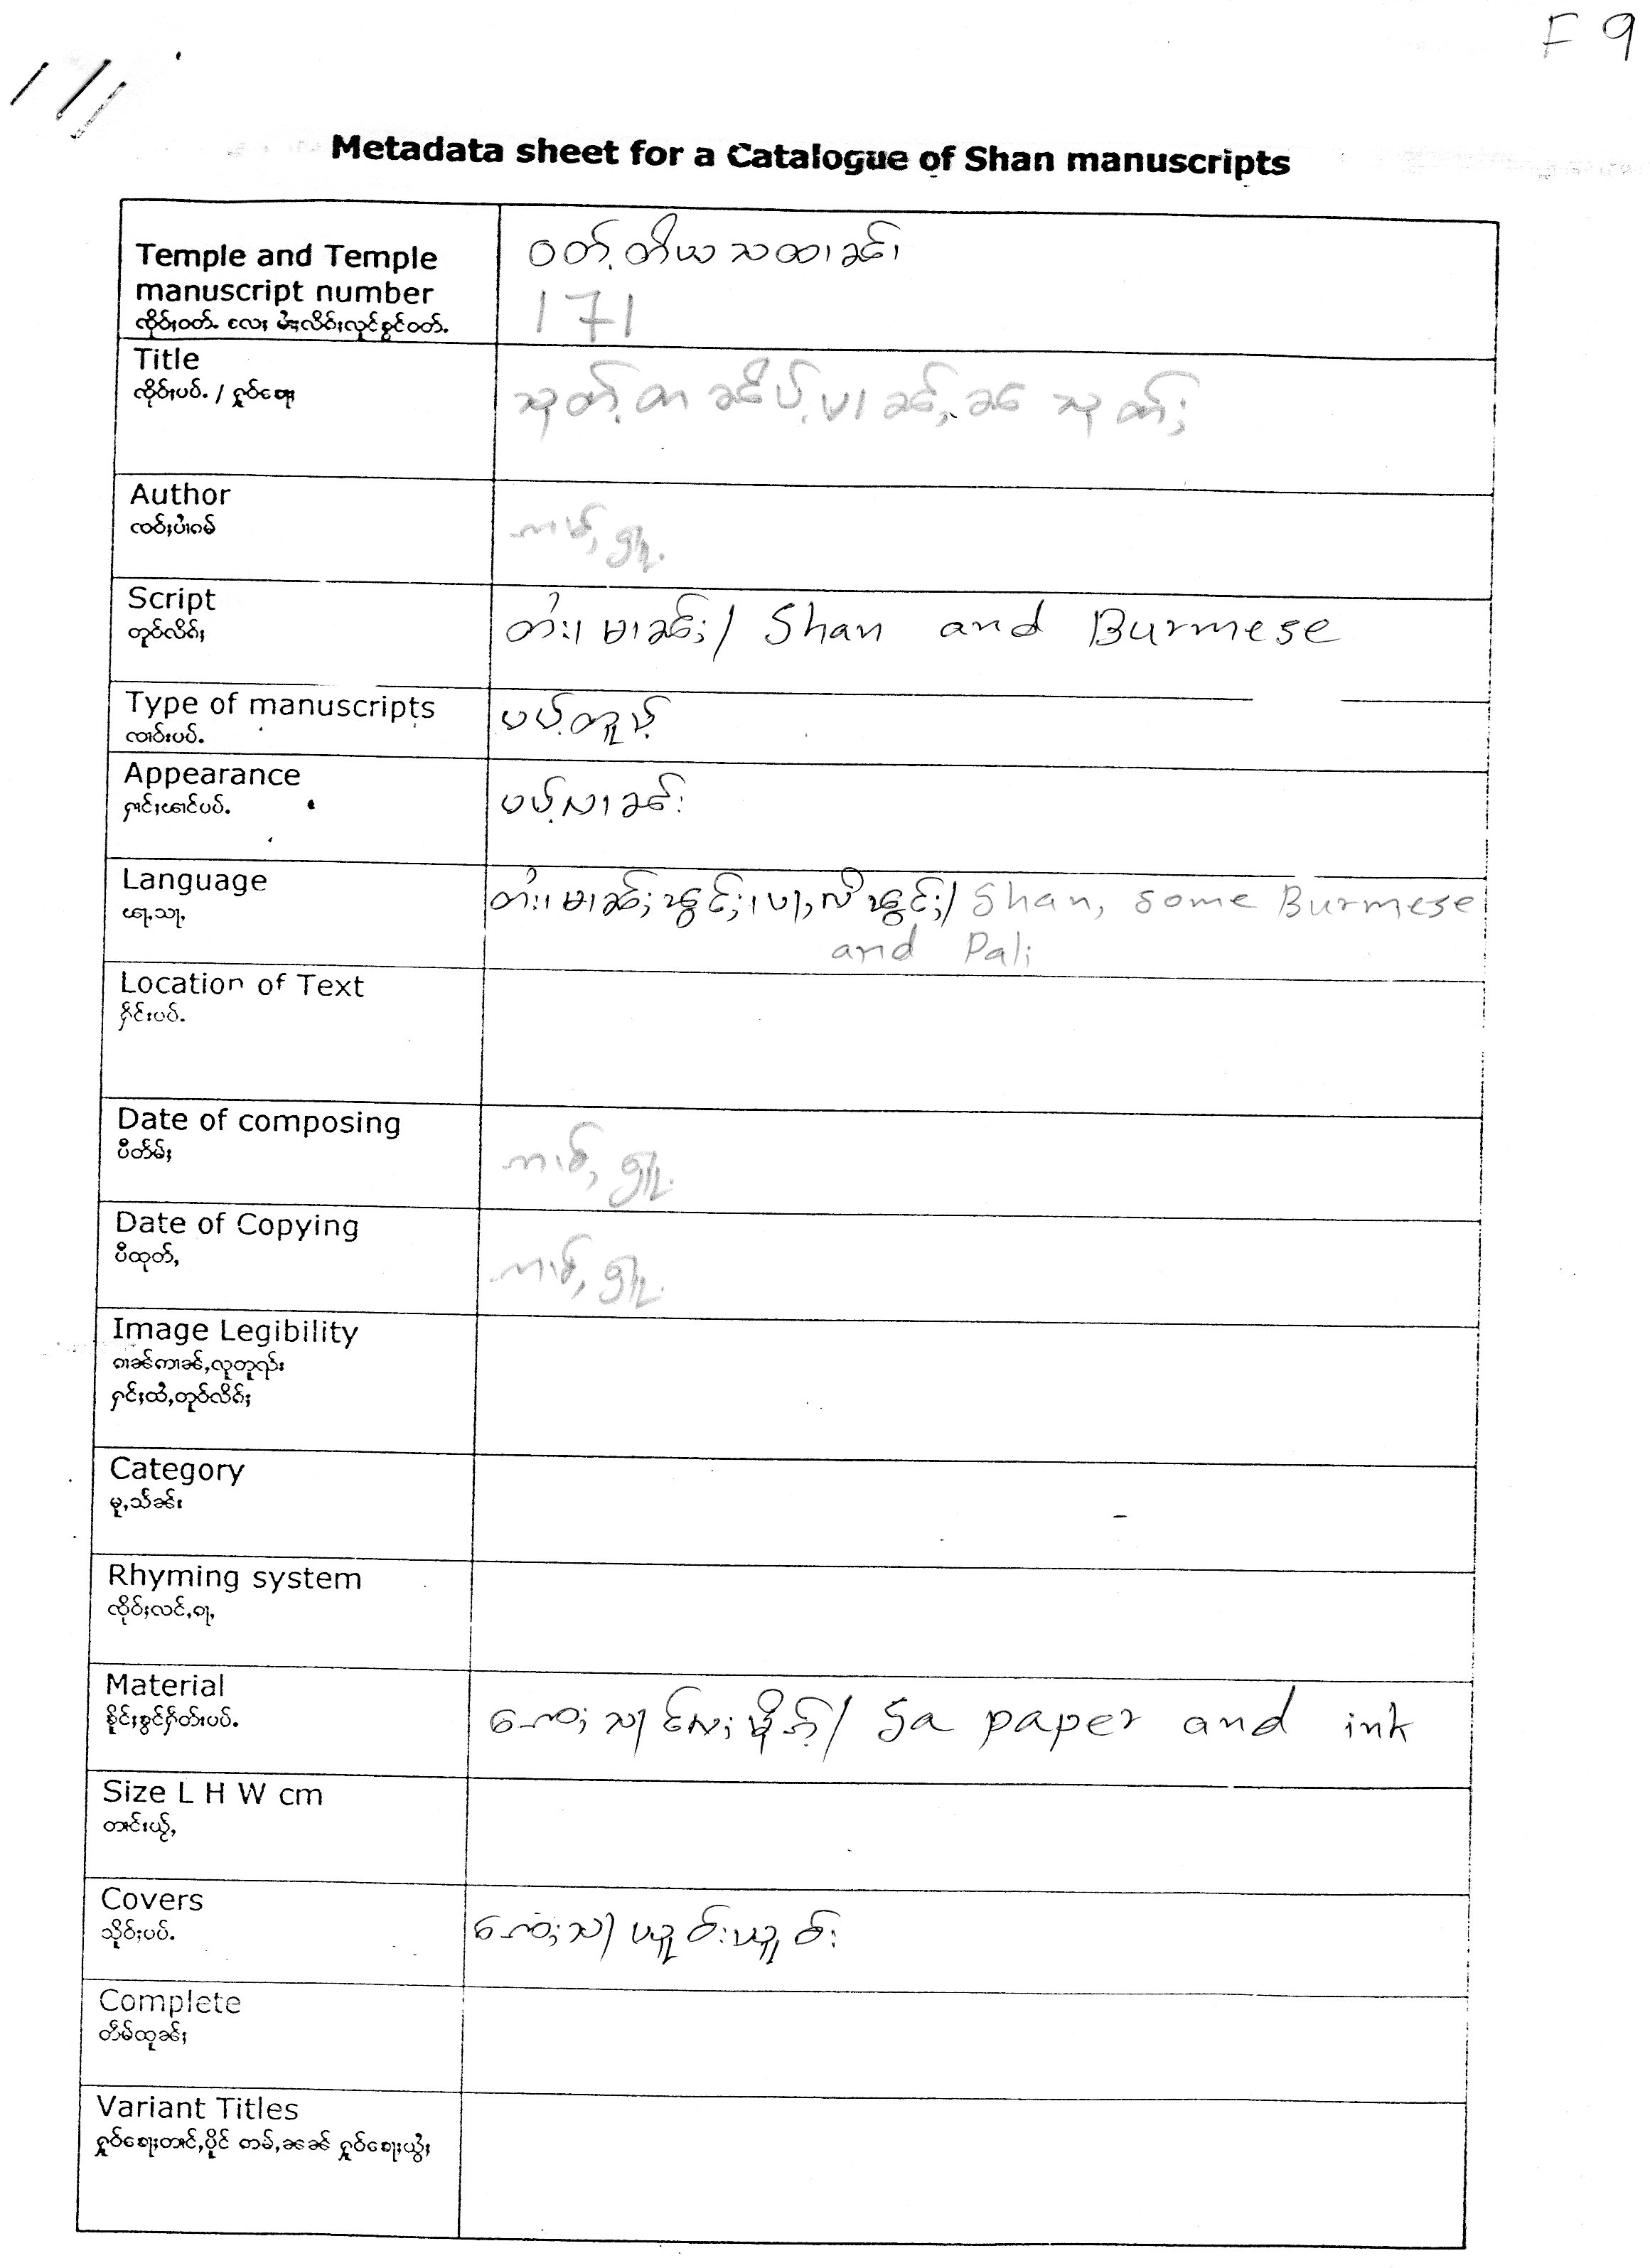 F 9
Metadata sheet for a Catalogue of Shan manuscripts
Temple and Temple
manuscript number
ၸိုဝ်ႈဝတ်ႉ လႄႈ မၢႆလိၵ်ႈလုၵ်ႈၸွင်ဝတ်ႉ
ဝတ်ႉတီယသထၢၼ်ႇ
171
Title
ၸိုဝ်ႈပပ်ႉ / ႁူဝ်ၶေႃႈ
သုတ်ႉတၼိပ်ႉပၢၼ်ႇၼႄသုတ်ႈ
Author
ၸဝ်ႈပၢႆၵမ်
ဢမ်ႇႁူႉ
Script
တူဝ်လိၵ်ႈ
တႆး၊ မၢၼ်ႈ / Shan and Burmese
Type of manuscripts
ၸၢဝ်းပပ်ႉ
ပပ်ႉတူပ်ႉ
Appearance
ႁၢင်ႈၽၢင်ပပ်ႉ
ပပ်ႉလၢၼ်း
Language
ၽႃႇသႃႇ
တႆး၊ မၢၼ်ႈၽွင်ႈ၊ ပႃႇလိၽွင်ႈ / Shan, some Burmese
and Pali
Location of Text
ႁိူင်းပပ်ႉ
Date of composing
ပီတႅမ်ႈ
ဢမ်ႇႁူႉ
Date of Copying
ပီထုတ်ႇ
ဢမ်ႇႁူႉ
Image Legibility
ၵၢၼ်ဢၢၼ်ႇလူတူၺ်း
ႁၢင်ႈထႆႇတူဝ်လိၵ်ႈ
Category
မူႇသႅၼ်း
Rhyming system
ၸိုဝ်ႈလင်ႇၵႃႇ
Material
ၶိူင်ႈၸွင်ႁဵတ်းပပ်ႉ
ၸေႈသႃလႄႈမိုၵ်ႉ / Sa paper and ink
Size L H W cm
တၢင်းယႂ်ႇ
Covers
သိူဝ်ႈပပ်ႉ
ၸေႈသႃ
Complete
တဵမ်ထူၼ်ႈ
Variant Titles
ႁူဝ်ၶေႃႈတၢင်ႇပိူင် ဢမ်ႇၼၼ် ႁူဝ်ၶေႃႈယွႆႈ